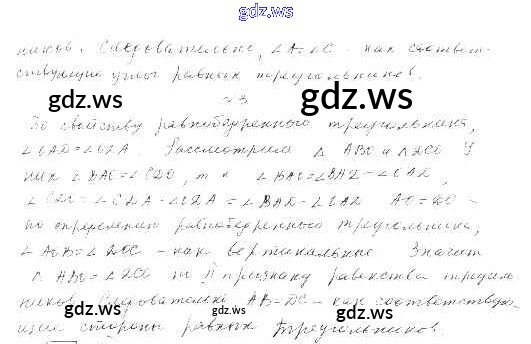 gdz.ws
ников. Следовательно, ∠A=∠C - как соответ-
ствующие углы равных треугольников.
gdz.ws gdz.ws
№3
По свойству равнобедренного треугольника,
∠OAD=∠ODA. Рассмотрим △ ABO и △DCO У
них ∠BAO=∠CDO, т.к ∠BAO=∠BAD-∠OAD,
∠CDO=∠CDA-∠ODA=∠BAD-∠OAD AO=DO -
по определению равнобедренного треугольника,
∠AOB=∠DOC - как вертикальные Значит
△ ABO=△DCO по II признаку равенства треуголь-
ников Следовательно AB=DC - как соответствую-
gdz.ws gdz.ws
щие стороны равных треугольников.